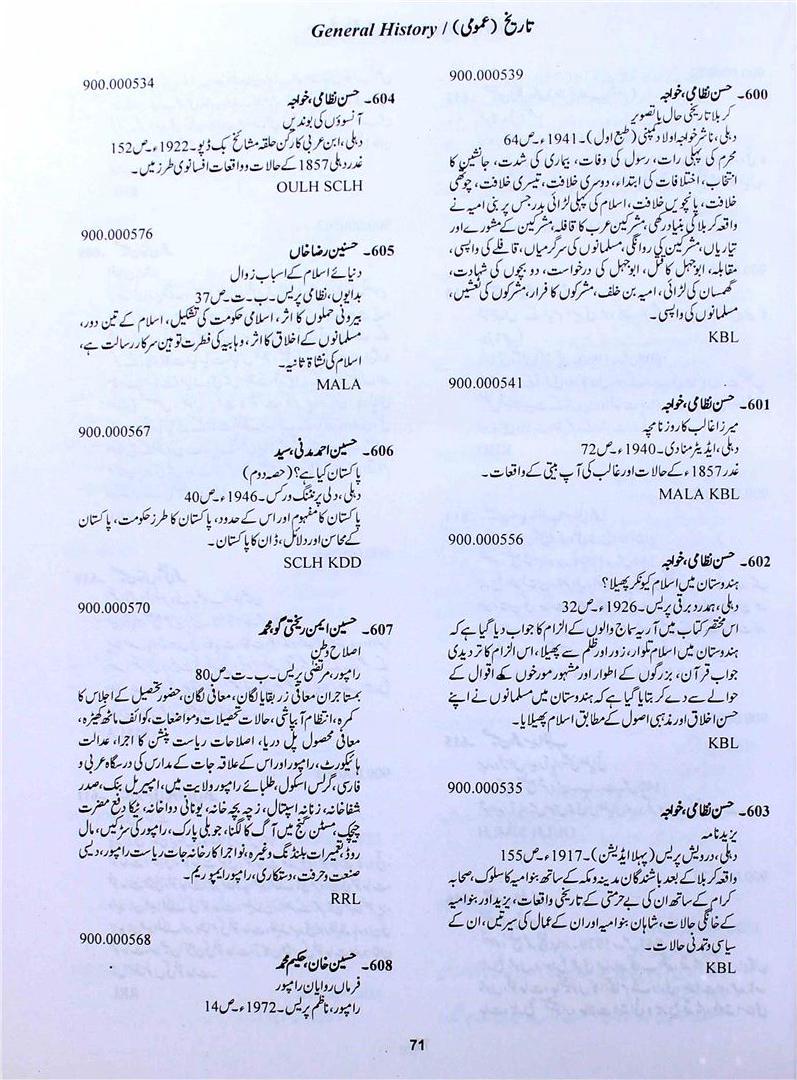 General History / تاریخ (عمومی)
900.000539
600۔ حسن نظامی، خواجہ
کربلا تاریخی حال با تصویر
دہلی، ناشر خواجہ اولاد کمپنی (طبع اول)۔ 1941ء۔ ص64
محرم کی پہلی رات، رسول کی وفات، بیماری کی شدت، جانشین کا
انتخاب، اختلافات کی ابتداء، دوسری خلافت، تیسری خلافت، چوتھی
خلافت، پانچویں خلافت، اسلام کی پہلی لڑائی بدر جس پر بنی امیہ نے
واقعہ کربلا کی بنیاد رکھی، مشرکین عرب کا قافلہ، مشرکین کے مشورے اور
تیاریاں، مشرکین کی روانگی، مسلمانوں کی سرگرمیاں، قافلے کی واپسی،
مقابلہ، ابوجہل کا قتل، ابوجہل کی درخواست، دو بچوں کی شہادت،
گھمسان کی لڑائی، امیہ بن خلف، مشرکوں کا فرار، مشرکوں کی نعشیں،
مسلمانوں کی واپسی۔
KBL
900.000541
601۔ حسن نظامی، خواجہ
میرزا غالب کا روزنامچہ
دہلی، ایڈیٹر منادی۔ 1940ء۔ ص72
غدر 1857ء کے حالات اور غالب کی آپ بیتی کے واقعات۔
MALA KBL
900.000556
602۔ حسن نظامی، خواجہ
ہندوستان میں اسلام کیونکر پھیلا؟
دہلی، ہمدرد برقی پریس۔ 1926ء۔ ص32
اس مختصر کتاب میں آریہ سماج والوں کے الزام کا جواب دیا گیا ہے کہ
ہندوستان میں اسلام تلوار، زور اور ظلم سے پھیلا، اس الزام کا تردیدی
جواب قرآن، بزرگوں کے اطوار اور مشہور مورخوں کے اقوال کے
حوالے سے دے کر بتایا گیا ہے کہ ہندوستان میں مسلمانوں نے اپنے
حسن اخلاق اور مذہبی اصول کے مطابق اسلام پھیلایا۔
KBL
900.000535
603۔ حسن نظامی، خواجہ
یزید نامہ
دہلی، درویش پریس (پہلا ایڈیشن)۔ 1917ء۔ ص155
واقعہ کربلا کے بعد باشندگان مدینہ و مکہ کے ساتھ بنو امیہ کا سلوک، صحابہ
کرام کے ساتھ ان کی بے حرمتی کے تاریخی واقعات، یزید اور بنو امیہ
کے خانگی حالات، شاہان بنو امیہ اور ان کے عمال کی سیرتیں، ان کے
سیاسی و تمدنی حالات۔
KBL
900.000534
604۔ حسن نظامی، خواجہ
آنسوؤں کی بوندیں
دہلی، ابن عربی کارکن حلقہ مشائخ بک ڈپو۔ 1922ء۔ ص152
غدر دہلی 1857 کے حالات و واقعات افسانوی طرز میں۔
OULH SCLH
900.000576
605۔ حسنین رضا خاں
دنیائے اسلام کے اسباب زوال
بدایوں، نظامی پریس۔ ب۔ت۔ ص37
بیرونی حملوں کا اثر، اسلامی حکومت کی تشکیل، اسلام کے تین دور،
مسلمانوں کے اخلاق کا اثر، وہابیہ کی فطرت توہین سرکار رسالت ہے،
اسلام کی نشاۃ ثانیہ۔
MALA
900.000567
606۔ حسین احمد مدنی، سید
پاکستان کیا ہے؟ (حصہ دوم)
دہلی، دلی پرنٹنگ ورکس۔ 1946ء۔ ص40
پاکستان کا مفہوم اور اس کے حدود، پاکستان کا طرز حکومت، پاکستان
کے محاسن اور دلائل، ڈان کا پاکستان۔
SCLH KDD
900.000570
607۔ حسین ایمن ریختی گو، محمد
اصلاح وطن
رامپور، مرتضٰی پریس۔ ب۔ت۔ ص80
بمستاجران معافی زر بقایا لگان، معافی لگان، حضور تحصیل کے اجلاس کا
کمرہ، انتظام آبپاشی، حالات تحصیلات و مواضعات، کوائف ماٹھ کھیڑہ،
معافی محصول پل دریا، اصلاحات ریاست پنشن کا اجرا، عدالت
ہائیکورٹ، رامپور اور اس کے علاقہ جات کے مدارس کی درسگاہ عربی و
فارسی، گرلس اسکول، طلبائے رامپور ولایت میں، امپیریل بنک، صدر
شفاخانہ، زنانہ اسپتال، زچہ بچہ خانہ، یونانی دواخانہ، ٹیکا دفع مضرت
چیچک، مسٹن گنج میں آگ کا لگنا، جوبلی پارک، رامپور کی سڑکیں، مال
روڈ، تعمیرات بلڈنگ وغیرہ، نو اجرا کارخانہ جات ریاست رامپور، دیسی
صنعت و حرفت، دستکاری، رامپور ایمپوریم۔
RRL
900.000568
608۔ حسین خان، حکیم محمد
فرماں روایان رامپور
رامپور، ناظم پریس۔ 1972ء۔ ص14
71